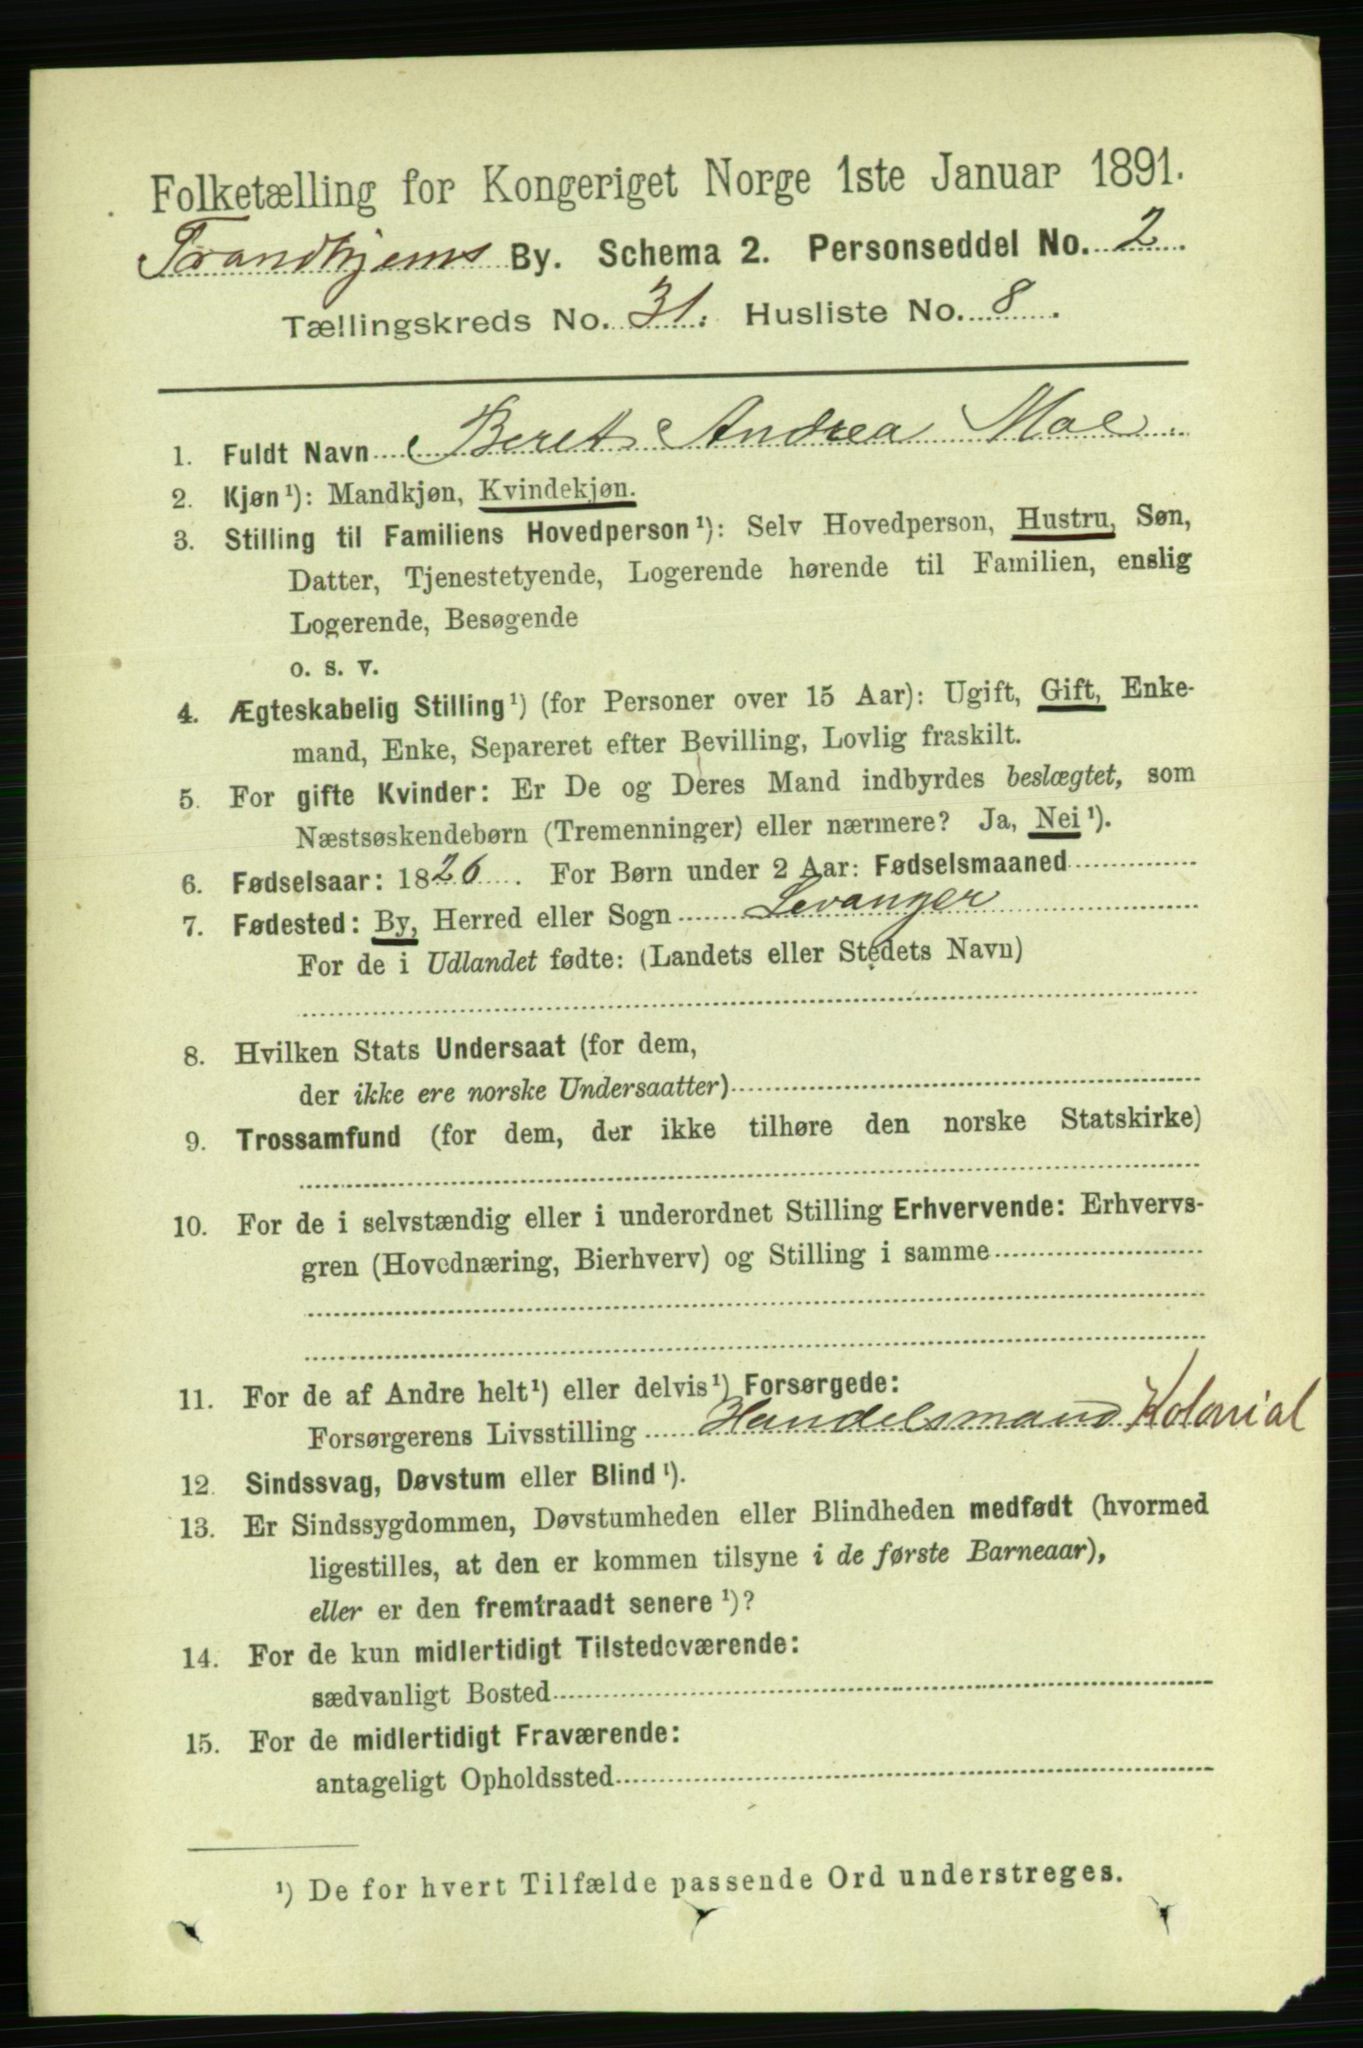 Folketælling for Kongeriget Norge 1ste Januar 1891.
Trondhjems By. Schema 2. Personseddel No. 2.
Tællingskreds No. 31. Husliste No. 8.
1. Fuldt Navn Beret Andrea Moe
2. Kjøn¹): Mandkjøn, Kvindekjøn.
3. Stilling til Familiens Hovedperson¹): Selv Hovedperson, Hustru, Søn,
Datter, Tjenestetyende, Logerende hørende til Familien, enslig
Logerende, Besøgende
o. s. v.
4. Ægteskabelig Stilling¹) (for Personer over 15 Aar): Ugift, Gift, Enke-
mand, Enke, Separeret efter Bevilling, Lovlig fraskilt.
5. For gifte Kvinder: Er De og Deres Mand indbyrdes beslægtet, som
Næstsøskendebørn (Tremenninger) eller nærmere? Ja, Nei¹).
6. Fødselsaar: 1826. For Børn under 2 Aar: Fødselsmaaned
7. Fødested: By, Herred eller Sogn Levanger
For de i Udlandet fødte: (Landets eller Stedets Navn)
8. Hvilken Stats Undersaat (for dem,
der ikke ere norske Undersaatter)
9. Trossamfund (for dem, der ikke tilhøre den norske Statskirke)
10. For de i selvstændig eller i underordnet Stilling Erhvervende: Erhvervs-
gren (Hovednæring, Bierhverv) og Stilling i samme
11. For de af Andre helt¹) eller delvis¹) Forsørgede:
Forsørgerens Livsstilling Handelsmand Kolonial
12. Sindssvag, Døvstum eller Blind¹).
13. Er Sindssygdommen, Døvstumheden eller Blindheden medfødt (hvormed
ligestilles, at den er kommen tilsyne i de første Barneaar),
eller er den fremtraadt senere¹)?
14. For de kun midlertidigt Tilstedeværende:
sædvanligt Bosted
15. For de midlertidigt Fraværende:
antageligt Opholdssted
¹) De for hvert Tilfælde passende Ord understreges.